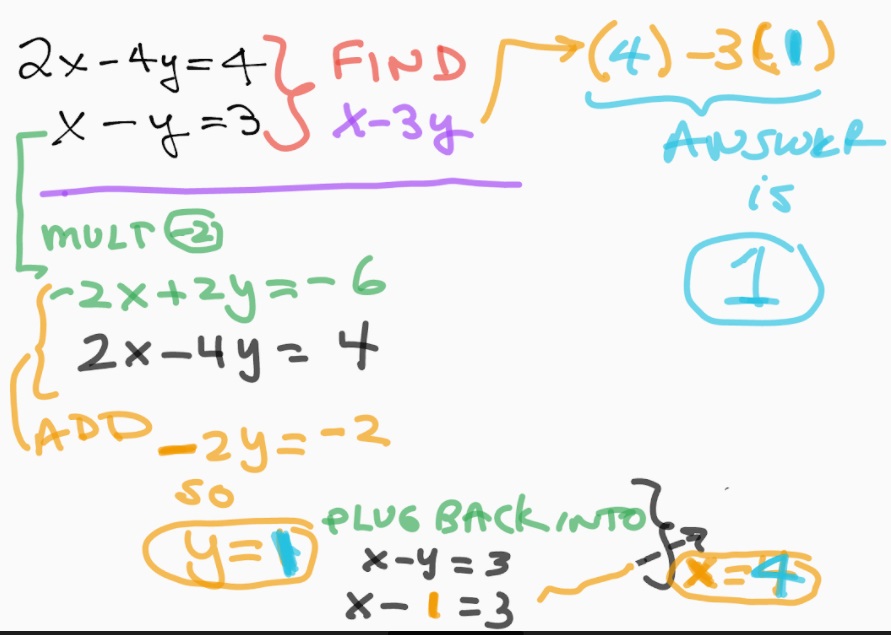 2x-4y=4
x-y=3
FIND
x-3y
(4)-3(1)
ANSWER
is
1
MULT -2
-2x+2y=-6
2x-4y=4
ADD
-2y=-2
so
y=1
PLUG BACK INTO
x-y=3
x-1=3
x=4